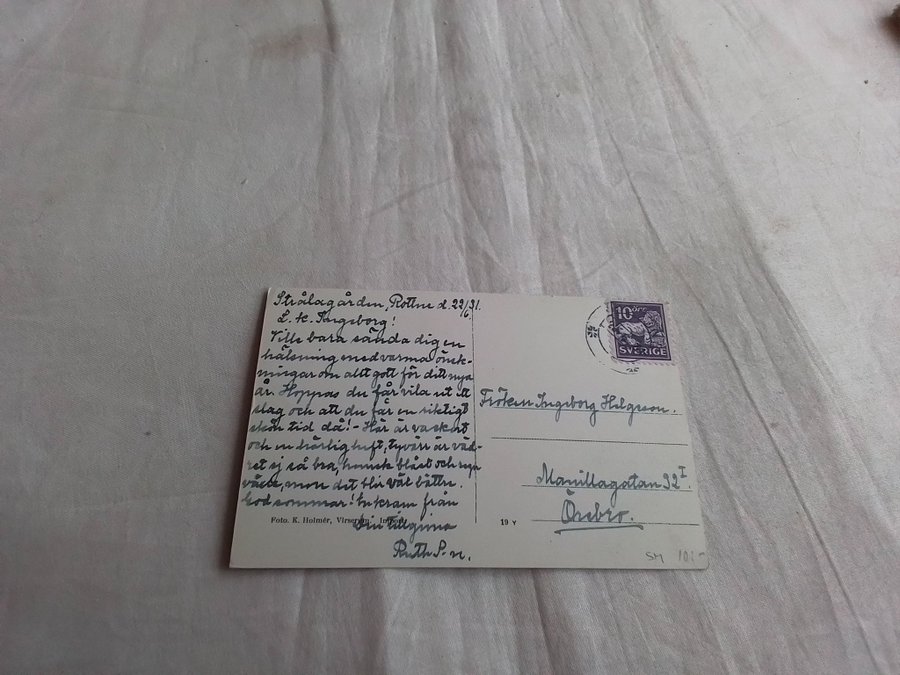 Strålagården, Rottne d. 22/6 31.
L. k. Ingeborg!
Ville bara sända dig en
hälsning med varma önsk-
ningar om allt gott för ditt nya
år. Hoppas du får vila ut ett
slag och att du får en riktigt
skön tid då! - Här är vackert
och en härlig luft, tyvärr är väd-
ret ej så bra, hemsk blåst och regn
väder, men det blir väl bättre.
God sommar! En kram från
Din tillgivna
Ruth S-n.
Foto. K. Holmér, Virserum.
19 Y
10 ÖRE
SVERIGE
Fröken Ingeborg Helgeson.
Manillagatan 32 I.
Örebro.
SM 10:-